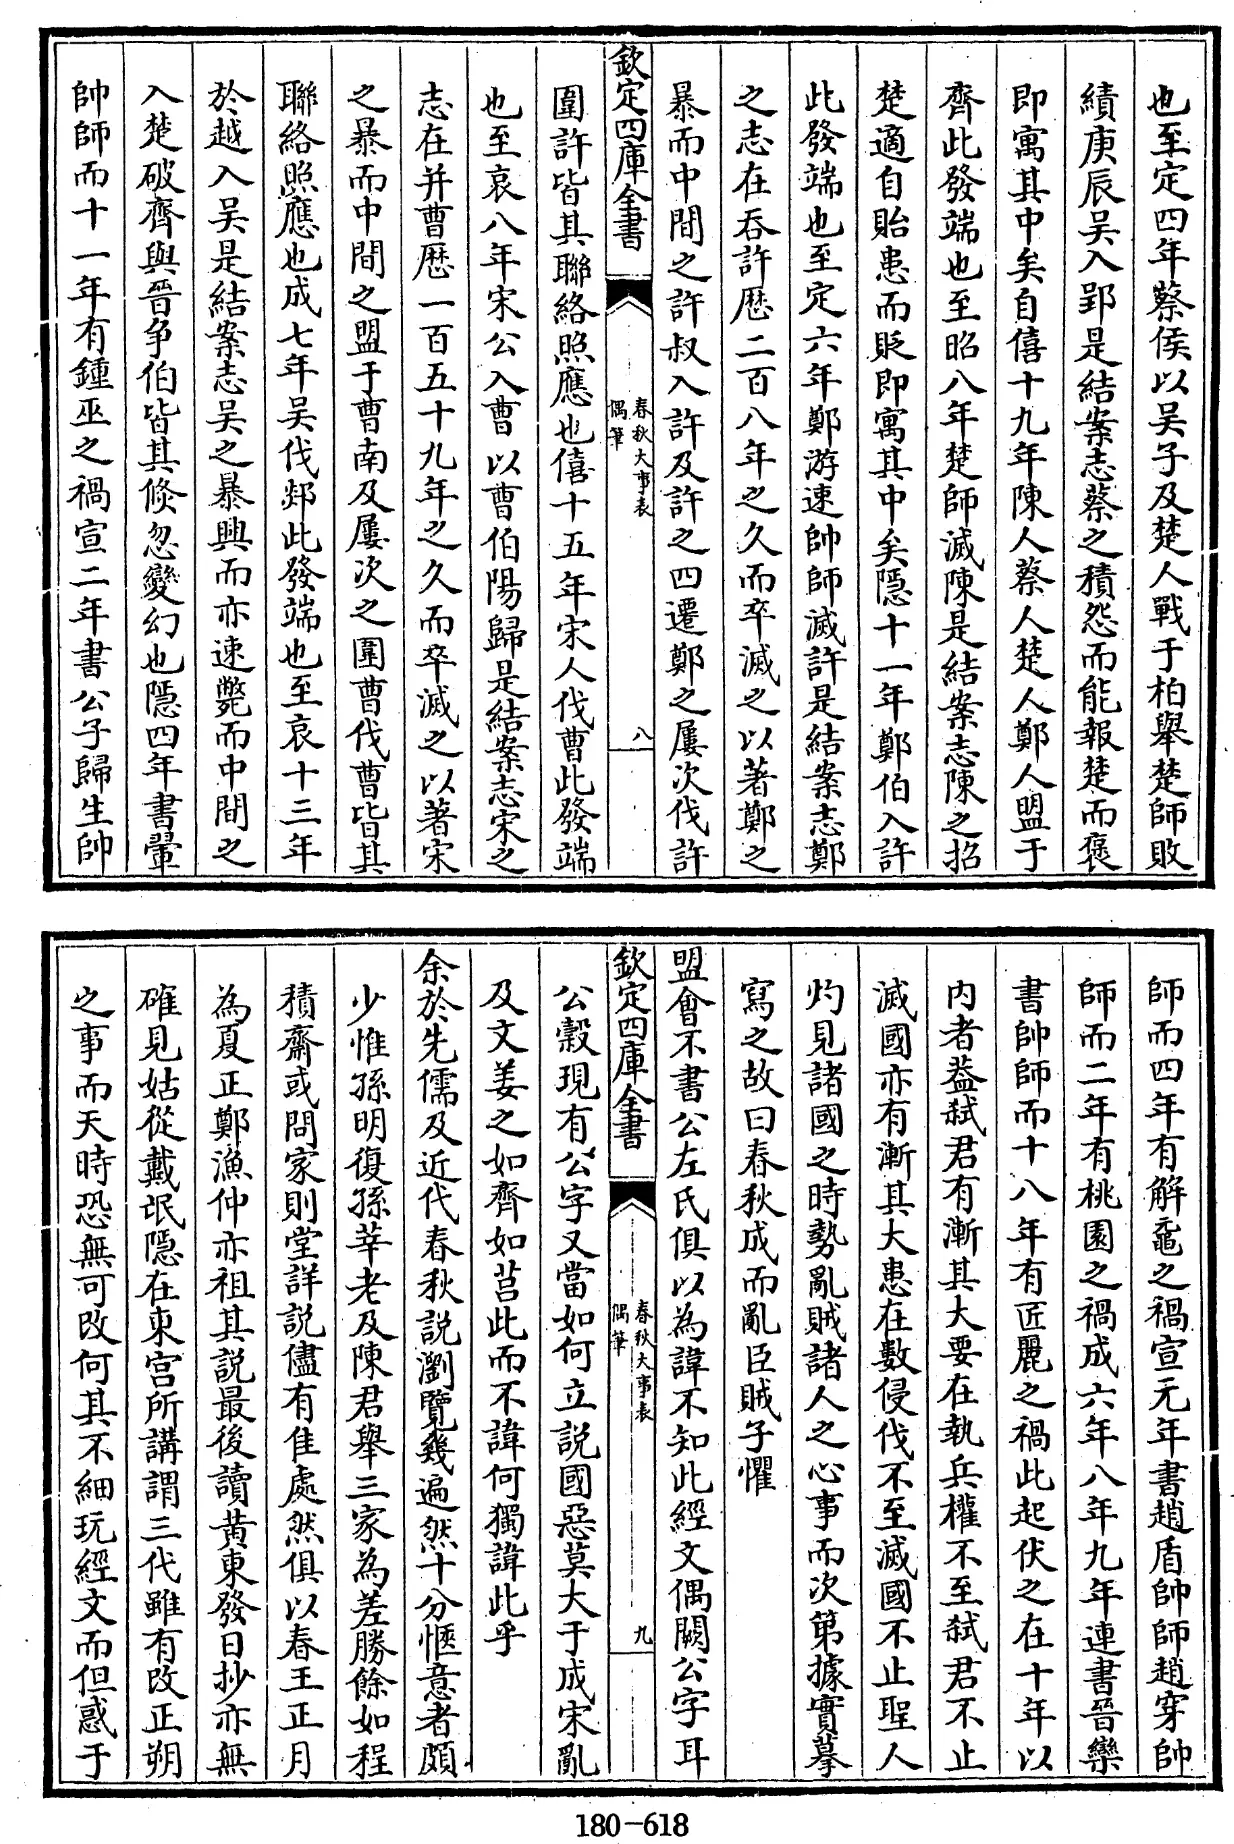 也至定四年蔡侯以吴子及楚人戰于柏舉楚師敗
績庚辰吴入郢是結案志蔡之積怨而能報楚而褒
即寓其中矣自僖十九年陳人蔡人楚人鄭人盟于
齊此發端也至昭八年楚師滅陳是結案志陳之招
楚適自貽患而貶即寓其中矣隱十一年鄭伯入許
此發端也至定六年鄭游速帥師滅許是結案志鄭
之志在吞許歴二百八年之久而卒滅之以著鄭之
暴而中間之許叔入許及許之四遷鄭之屢次伐許
欽定四庫全書
春秋大事表
偶筆
八
圍許皆其聯絡照應也僖十五年宋人伐曹此發端
也至哀八年宋公入曹以曹伯陽歸是結案志宋之
志在并曹歴一百五十九年之久而卒滅之以著宋
之暴而中間之盟于曹南及屢次之圍曹伐曹皆其
聯絡照應也成七年吴伐郯此發端也至哀十三年
於越入吴是結案志吴之暴興而亦速斃而中間之
入楚破齊與晉爭伯皆其倐忽變幻也隱四年書翬
帥師而十一年有鍾巫之禍宣二年書公子歸生帥
師而四年有解黿之禍宣元年書趙盾帥師趙穿帥
師而二年有桃園之禍成六年八年九年連書晉欒
書帥師而十八年有匠麗之禍此起伏之在十年以
内者葢弑君有漸其大要在執兵權不至弑君不止
滅國亦有漸其大患在數侵伐不至滅國不止聖人
灼見諸國之時勢亂賊諸人之心事而次第據實摹
寫之故曰春秋成而亂臣賊子懼
盟會不書公左氏俱以為諱不知此經文偶闕公字耳
欽定四庫全書
春秋大事表
偶筆
九
公穀現有公字又當如何立說國惡莫大于成宋亂
及文姜之如齊如莒此而不諱何獨諱此乎
余於先儒及近代春秋說瀏覽幾遍然十分愜意者頗
少惟孫明復孫莘老及陳君舉三家為差勝餘如程
積齋或問家則堂詳說儘有佳處然俱以春王正月
為夏正鄭漁仲亦祖其說最後讀黄東發日抄亦無
確見姑從戴岷隱在東宮所講謂三代雖有改正朔
之事而天時恐無可改何其不細玩經文而但惑于
180-618